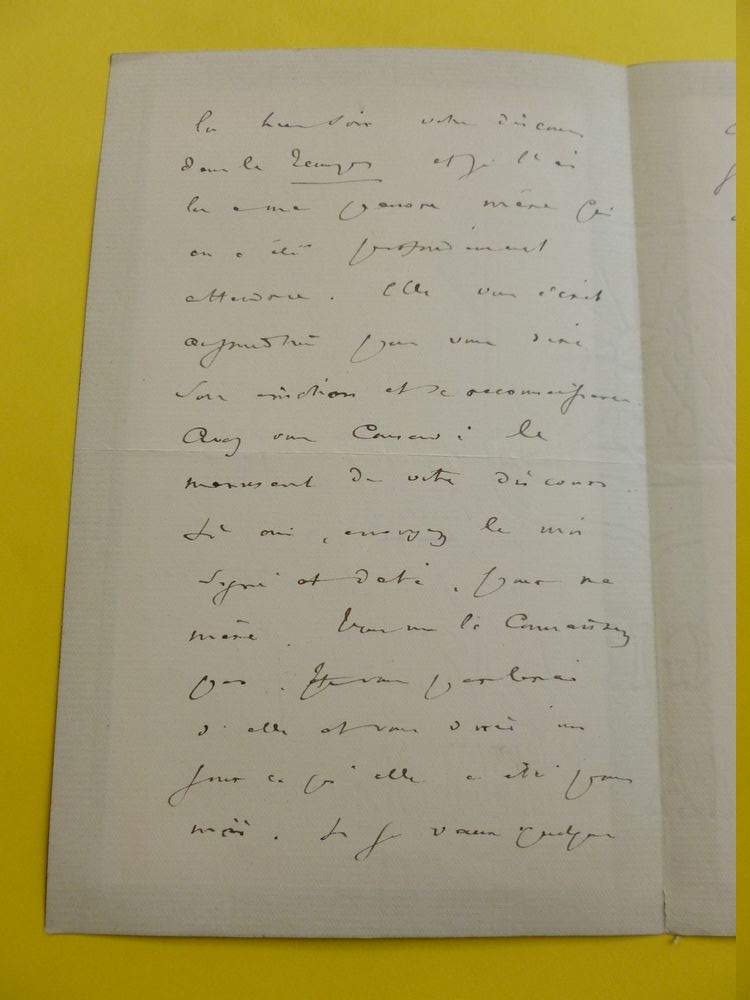 lu hier soir votre discours
dans le Temps et je l'ai
lu à ma pauvre mère qui
en a été profondément
attendrie. Elle vous écrit
aujourd'hui pour vous dire
son émotion et sa reconnaissance.
Avez vous conservé le
manuscrit de votre discours.
Si oui, envoyez le moi
signé et daté, pour ma
mère. Vous ne la connaissez
pas. Je vous parlerai
d'elle et vous dirai un
jour ce qu'elle a été pour
moi. Si je vaux quelque